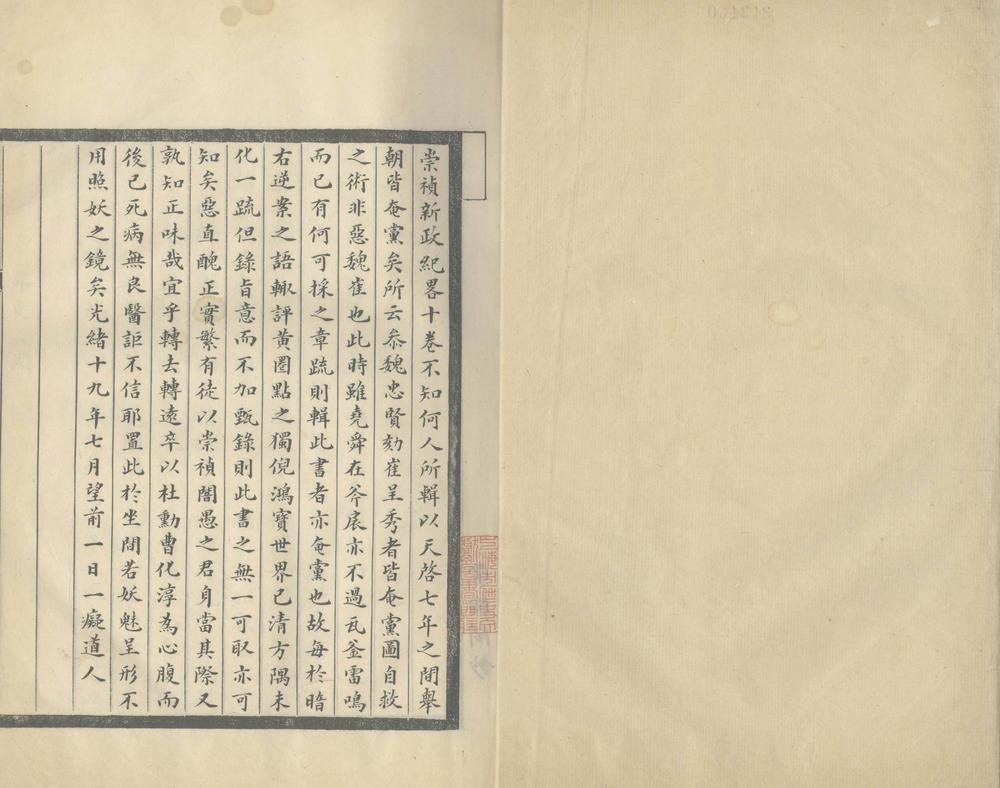 崇禎新政紀畧十卷不知何人所輯以天啓七年之間舉
朝皆奄黨矣所云叅魏忠賢劾崔呈秀者皆奄黨圖自救
之術非惡魏崔也此時雖堯舜在斧扆亦不過瓦釜雷鳴
而已有何可採之章疏則輯此書者亦奄黨也故每於暗
右逆案之語輙評黄圈點之獨倪鴻寶世界已清方隅未
化一疏但錄旨意而不加甄錄則此書之無一可取亦可
知矣惡直醜正實繁有徒以崇禎闇愚之君身當其際又
孰知正味哉宜乎轉去轉遠卒以杜勳曹化淳為心腹而
後已死病無良醫詎不信耶置此於坐間若妖魅呈形不
用照妖之鏡矣光緒十九年七月望前一日一癡道人